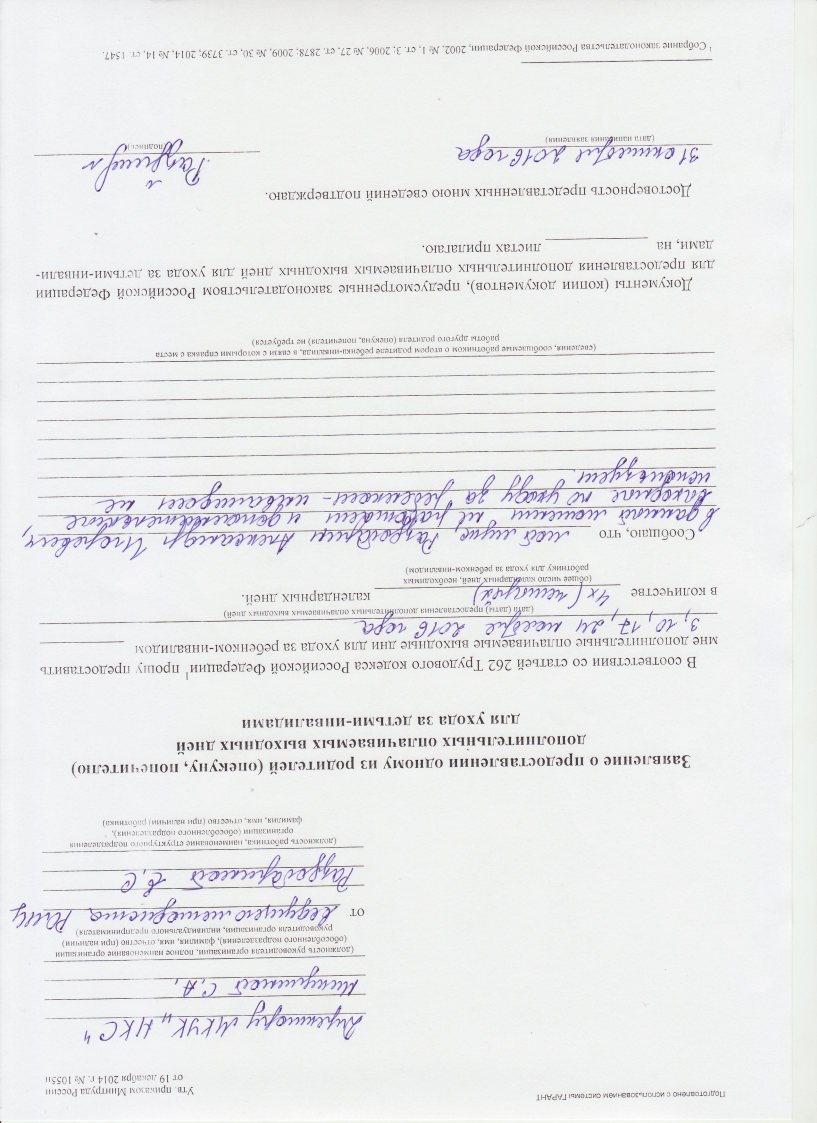 Подготовлено с использованием системы ГАРАНТ
Утв. приказом Минтруда России
от 19 декабря 2014 г. № 1055н
Директору МКУК "НКС"
С.А.
(должность руководителя организации, полное наименование организации
(обособленного подразделения), фамилия, имя, отчество (при наличии)
руководителя организации, индивидуального предпринимателя)
от
Е.С
(должность работника, наименование структурного подразделения
организации (обособленного подразделения),
фамилия, имя, отчество (при наличии) работника)
Заявление о предоставлении одному из родителей (опекуну, попечителю)
дополнительных оплачиваемых выходных дней
для ухода за детьми-инвалидами
В соответствии со статьей 262 Трудового кодекса Российской Федерации¹ прошу предоставить
мне дополнительные оплачиваемые выходные дни для ухода за ребенком-инвалидом
3, 10, 17, 24 ноября 2016 года
(дата (даты) предоставления дополнительных оплачиваемых выходных дней)
в количестве 4х (четырёх) календарных дней.
(общее число календарных дней, необходимых
работнику для ухода за ребенком-инвалидом)
Сообщаю, что мой муж, Александр Игоревич,
в данный момент не работает и дополнительные
выходные по уходу за ребенком-инвалидом не
использует.
(сведения, сообщаемые работником о втором родителе ребенка-инвалида, в связи с которыми справка с места
работы другого родителя (опекуна, попечителя) не требуется)
Документы (копии документов), предусмотренные законодательством Российской Федерации
для предоставления дополнительных оплачиваемых выходных дней для ухода за детьми-инвали-
дами, на листах прилагаю.
Достоверность представленных мною сведений подтверждаю.
31 октября 2016 года
(дата написания заявления) (подпись)
¹ Собрание законодательства Российской Федерации, 2002, № 1, ст. 3; 2006, № 27, ст. 2878; 2009, № 30, ст. 3739; 2014, № 14, ст. 1547.